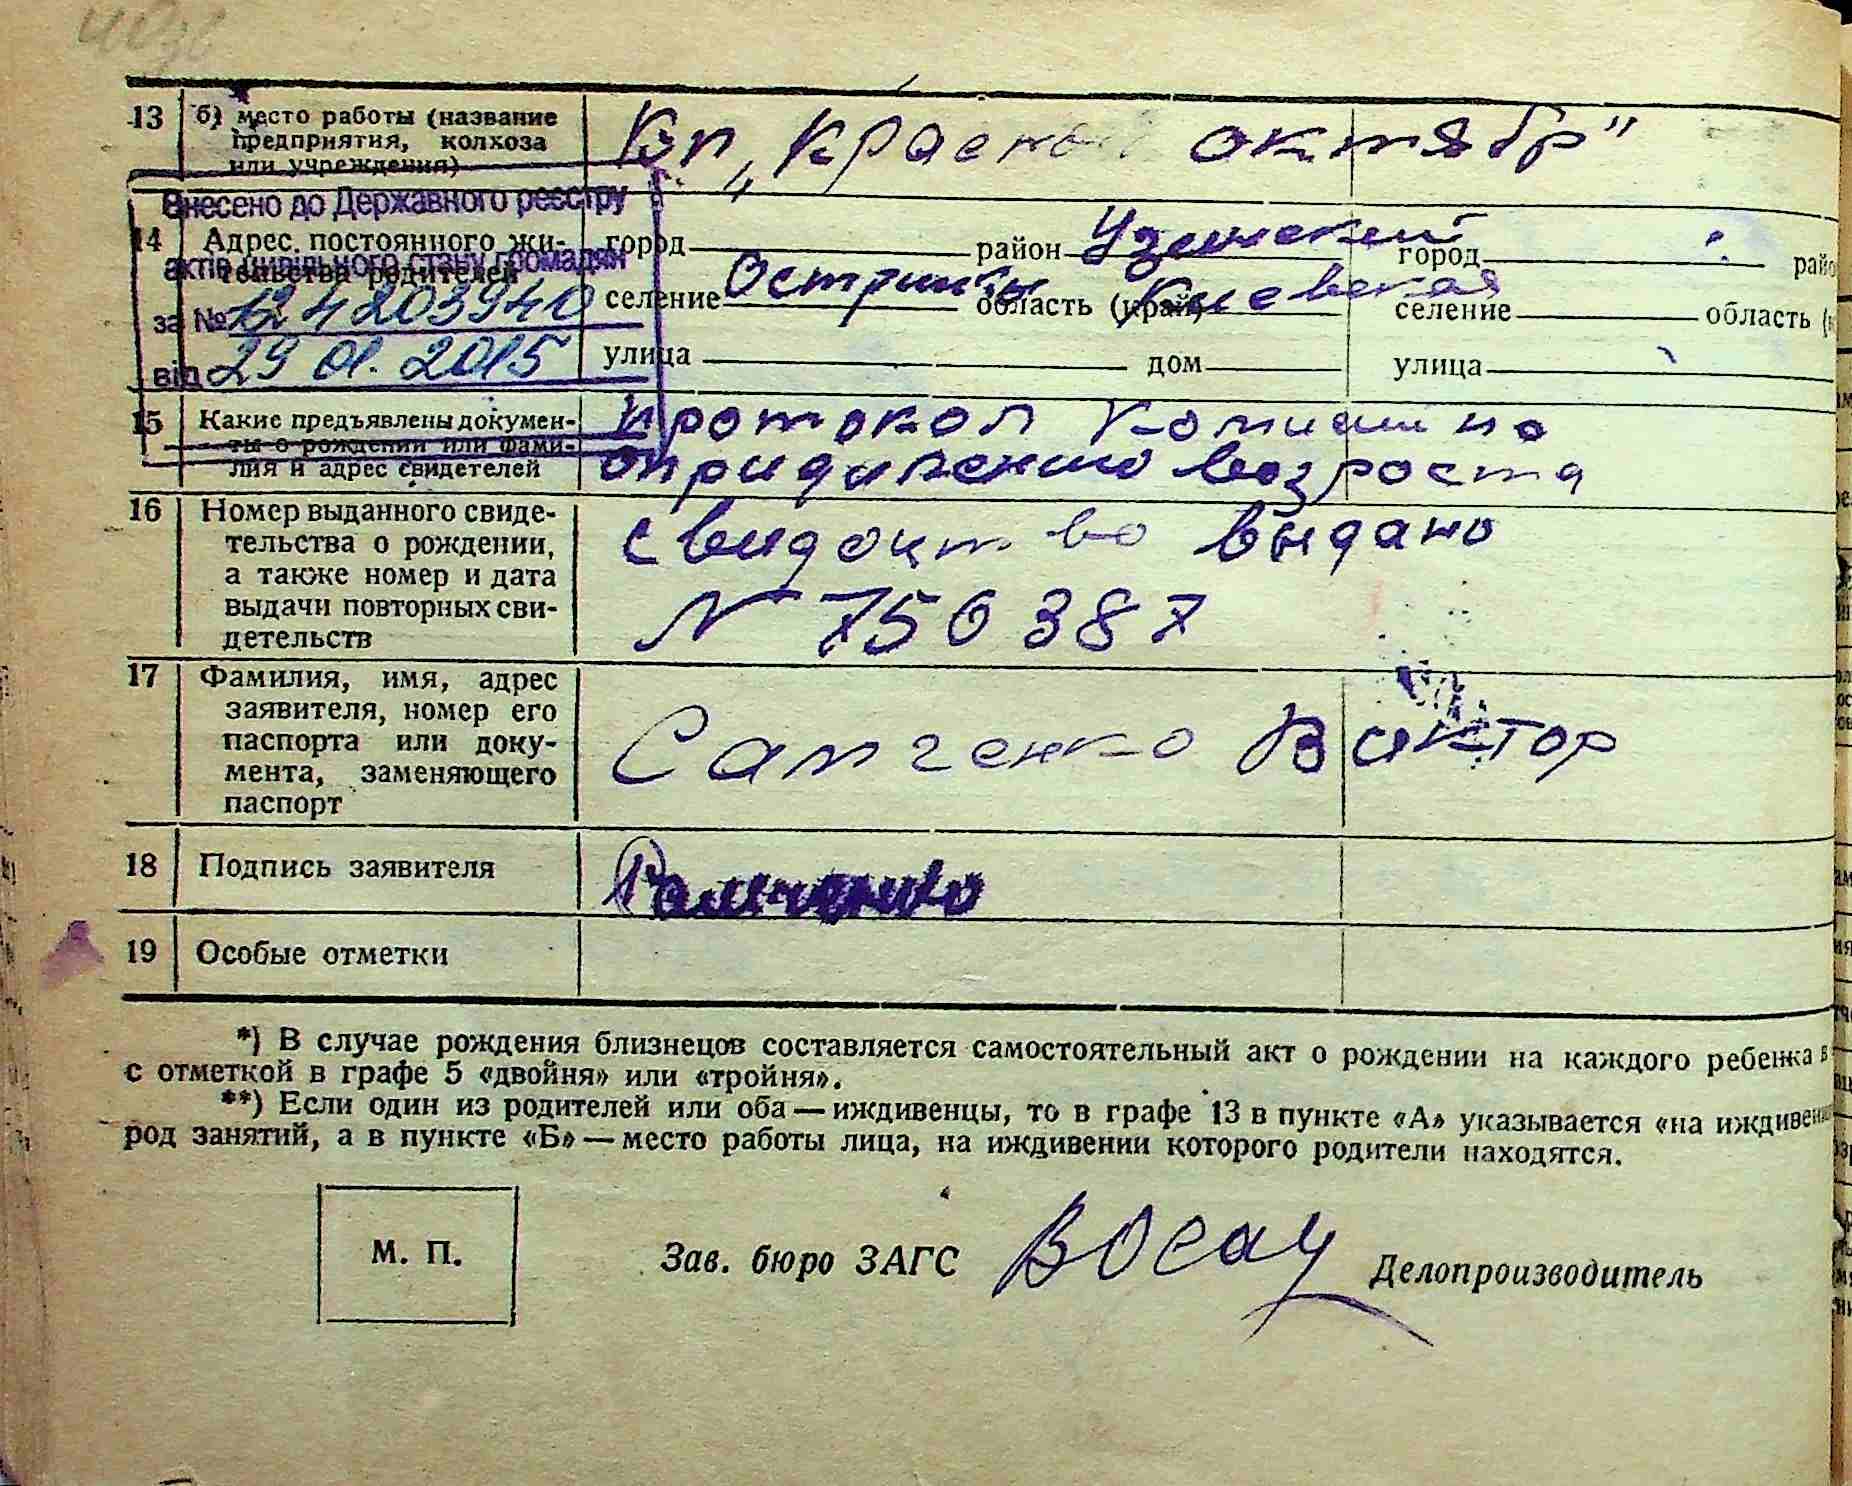 13 б) место работы (название
предприятия, колхоза
или учреждения)
"Красный октябр"
Внесено до Державного реєстру
актів цивільного стану громадян
за № 12 4203940
від 29 01. 2015
14 Адрес постоянного жи-
тельства родителей
город район Узинский город райо
селение область (край) Киевская селение область (
улица дом улица
15 Какие предъявлены докумен-
ты о рождении или фами-
лия и адрес свидетелей
Протокол комиси по
опридилению возроста
16 Номер выданного свиде-
тельства о рождении,
а также номер и дата
выдачи повторных сви-
детельств
выдано
N 756387
17 Фамилия, имя, адрес
заявителя, номер его
паспорта или доку-
мента, заменяющего
паспорт
Самченко Виктор
18 Подпись заявителя
19 Особые отметки
*) В случае рождения близнецов составляется самостоятельный акт о рождении на каждого ребенка в
с отметкой в графе 5 «двойня» или «тройня».
**) Если один из родителей или оба — иждивенцы, то в графе 13 в пункте «А» указывается «на иждивени
род занятий, а в пункте «Б» — место работы лица, на иждивении которого родители находятся.
М. П.
Зав. бюро ЗАГС Делопроизводитель